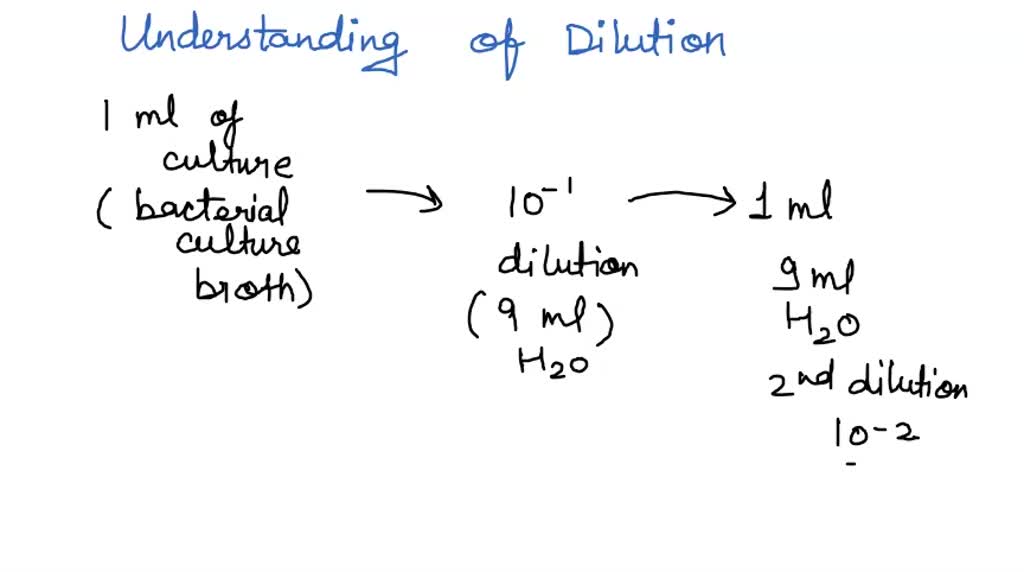 Understanding of Dilution
1 ml of
culture
( bacterial
culture
broth)
10⁻¹
dilution
(9 ml)
H₂O
1 ml
9 ml
H₂O
2nd dilution
10-2